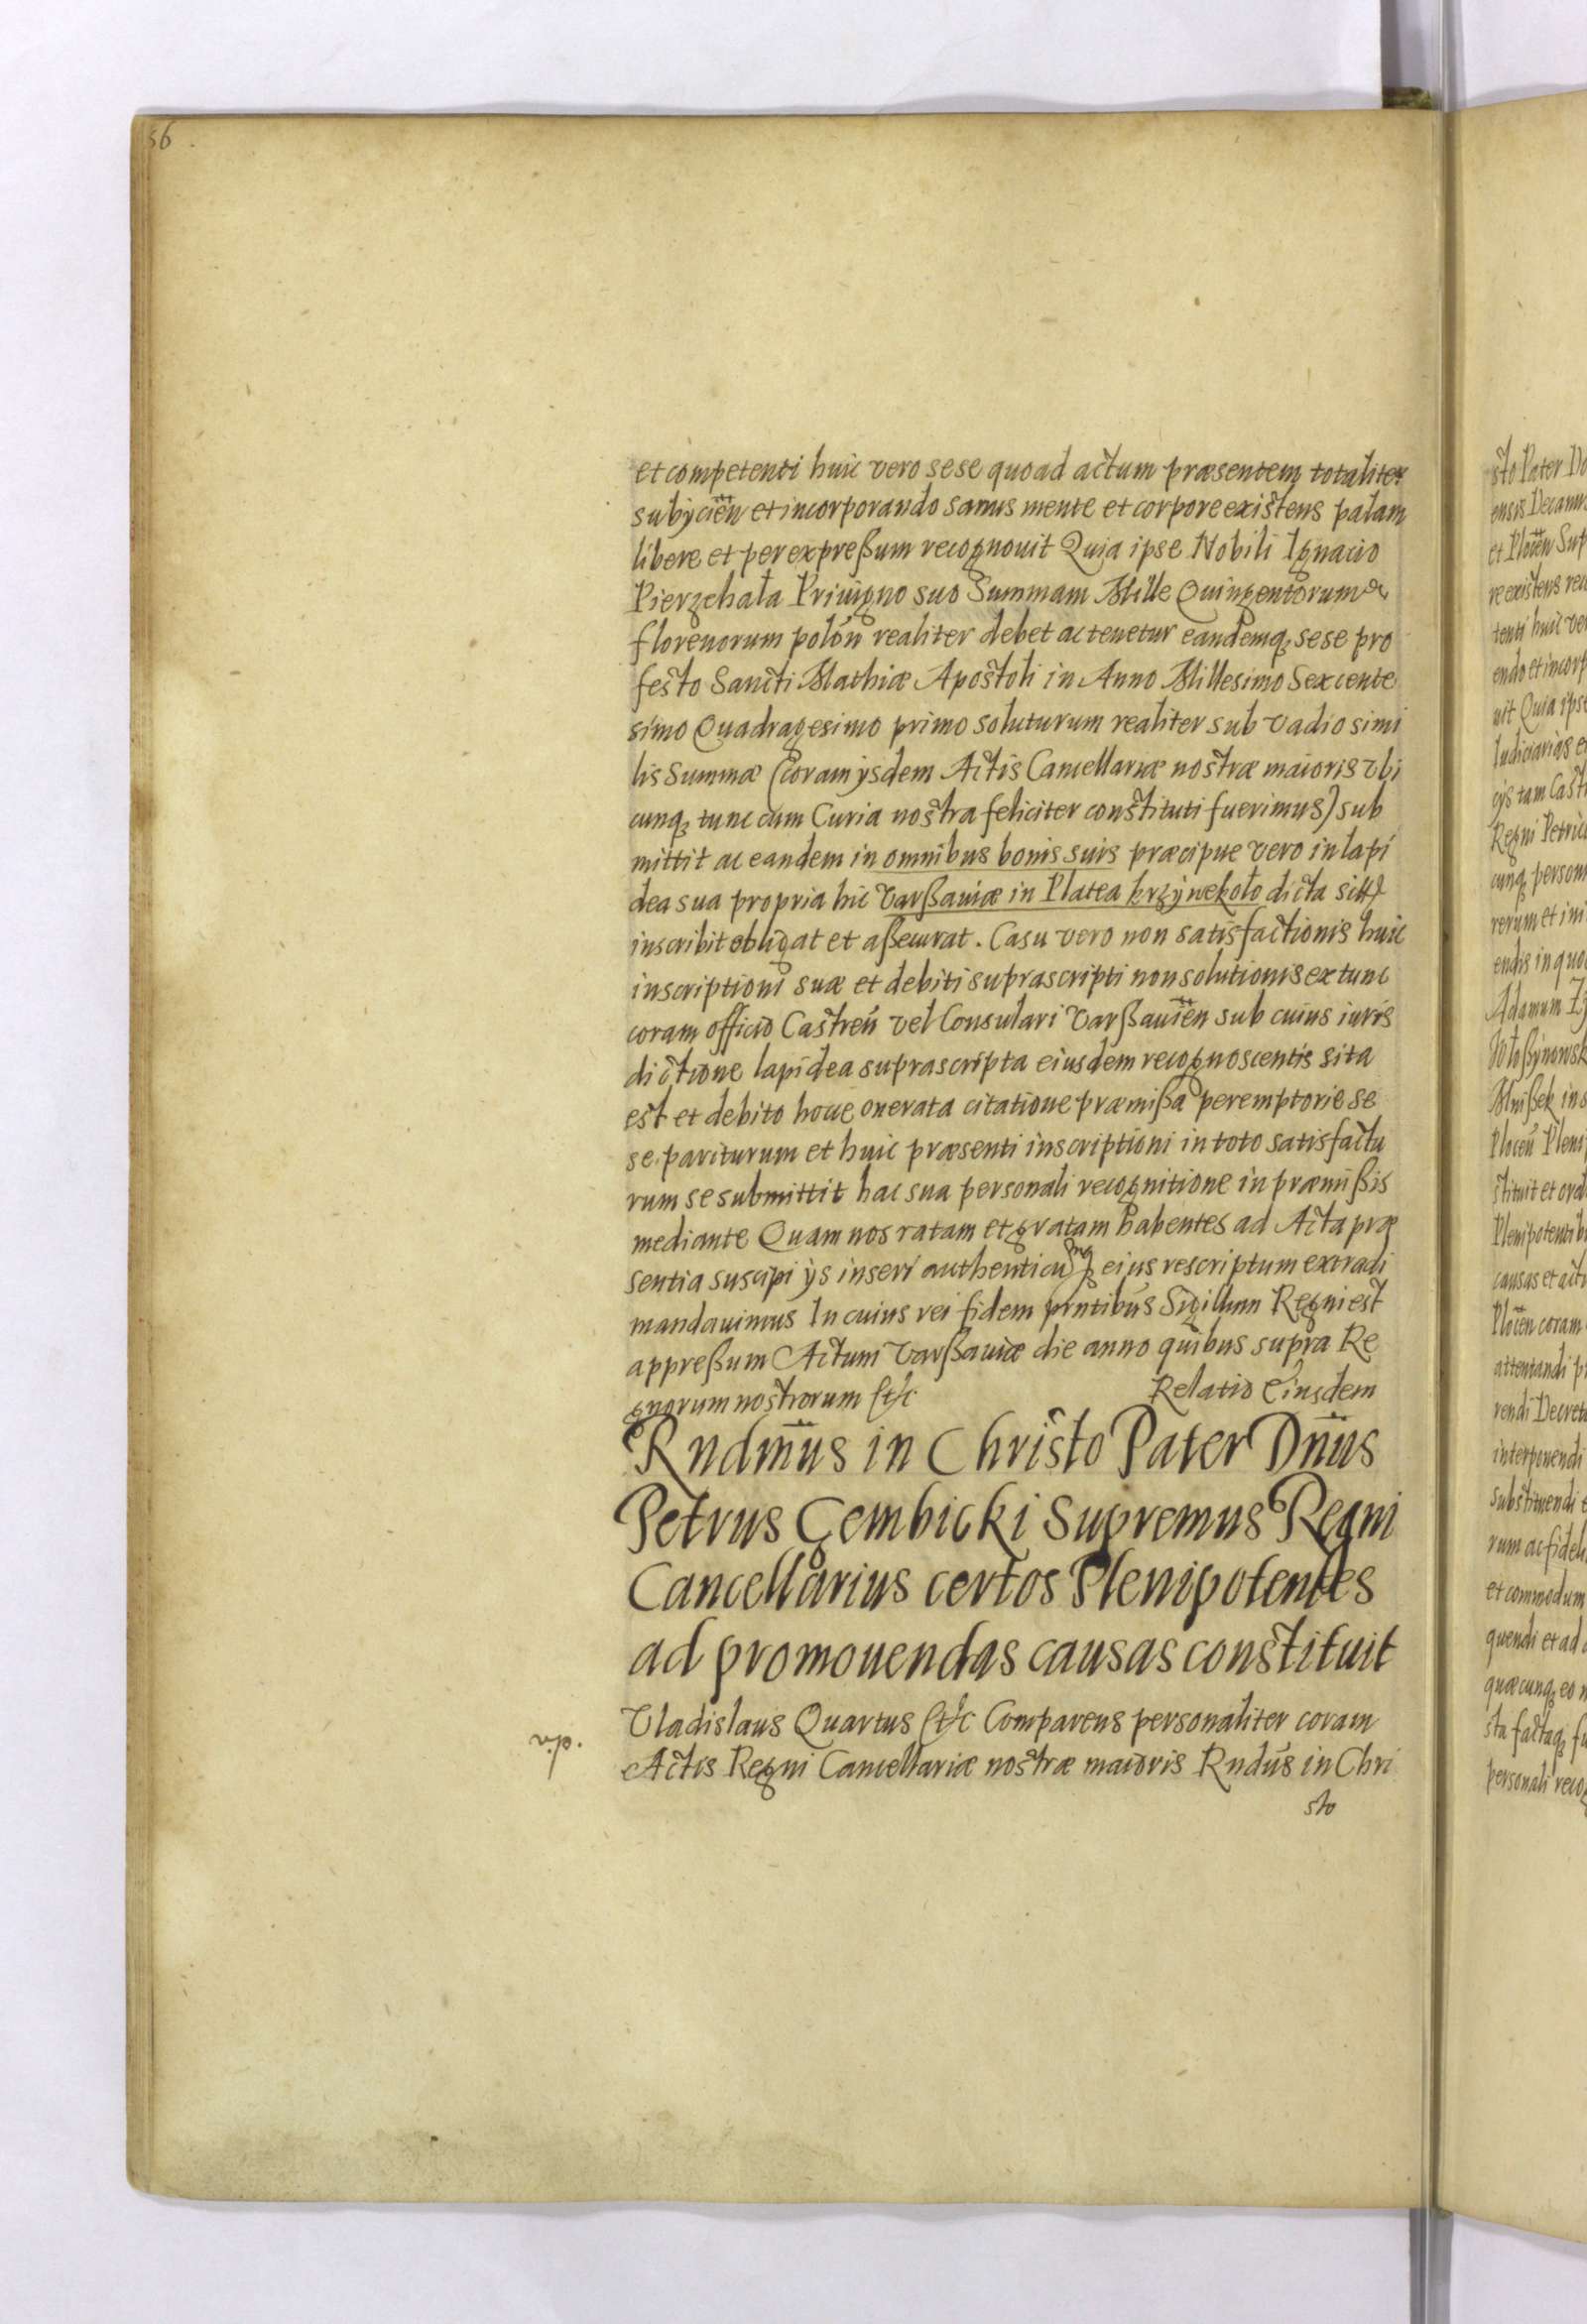 56
et competenti huic vero sese quoad actum præsentem totaliter
subÿcien̄ et incorporando sanus mente et corpore existens palam
libere et per expreßum recognouit Quia ipse Nobili Ignacio
Pierzchała Priuigno suo Summam Mille Quingentorum
florenorum polon̄ realiter debet ac tenetur eandemq₃ sese pro
festo Sancti Mathiæ Apostoli in Anno Millesimo Sexcente
simo Quadragesimo primo soluturum realiter sub vadio simi
lis Summæ (coram ÿsdem Actis Cancellariæ nostræ maioris vbi
cunq₃ tunc cum Curia nostra feliciter constituti fuerimus) sub
mittit ac eandem in omnibus bonis suis præcipue vero in lapi
dea sua propria hic Varßauiæ in Platea krzÿwekoło dicta
inscribit obligat et aßecurat. Casu vero non satisfactionis huic
inscriptioni suæ et debiti suprascripti non solutionis ex tunc
coram officio Castren̄ vel Consulari Varßauien̄ sub cuius iuris
dictione lapidea suprascripta eiusdem recognoscentis sita
est et debito hocce onerata citatione præmißa peremptorie se
se pariturum et huic præsenti inscriptioni in toto satisfactu
rum se submittit hac sua personali recognitione in præmißis
mediante Quam nos ratam et gratam habentes ad Acta præ
sentia suscipi ÿs inseri authenticu eius rescriptum extradi
mandauimus In cuius rei fidem pn̄tibus Sigillum Regni est
appreßum Actum Varßauiæ die anno quibus supra Re
gnorum nostrorum &c Relatio Eiusdem
Rndm̄us in Christo Pater Dn̄us
Petrus Gembicki Supremus Regni
Cancellarius certos Plenipotentes
ad promouendas causas constituit
Vladislaus Quartus &c Comparens personaliter coram
Actis Regni Cancellariæ nostræ maioris Rndūs in Chri
sto
sto Pater
ensis Decanus
et Plocen̄
tenti huic
uit Quia ipse
Regni
Adamum
Mnißek in
Plocen̄
stituit et
causas et
Plocen̄ coram
attentandi
interponendi
substituendi
rum ac
et commodum
quendi et ad
personali